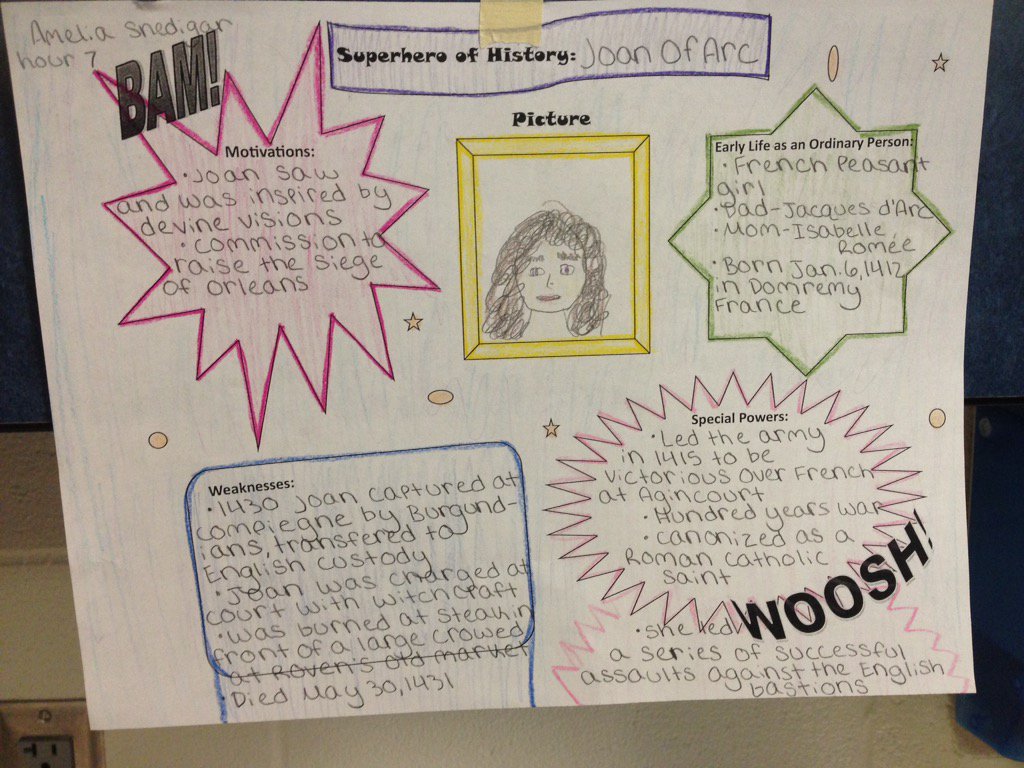 Amelia Snedigar
hour 7
BAM!
Superhero of History: Joan Of Arc
Motivations:
• Joan saw
and was inspired by
devine visions
• commission to
raise the siege
of orleans
Picture
Early Life as an Ordinary Person:
• French Peasant
girl
• Dad-Jacques d'Arc
• Mom-Isabelle
Romée
• Born Jan. 6, 1412
in Domremy
France
Weaknesses:
• 1430 Joan captured at
compiegne by Burgund-
ians, transfered to
English custody
• Joan was charged at
court with witchcraft
• was burned at steak in
front of a large crowed
at Roven's old market
Died May 30, 1431
Special Powers:
• Led the army
in 1415 to be
victorious over French
at Agincourt
• Hundred years war
• canonized as a
Roman Catholic
saint
WOOSH!
• she led
a series of successful
assaults against the English
bastions